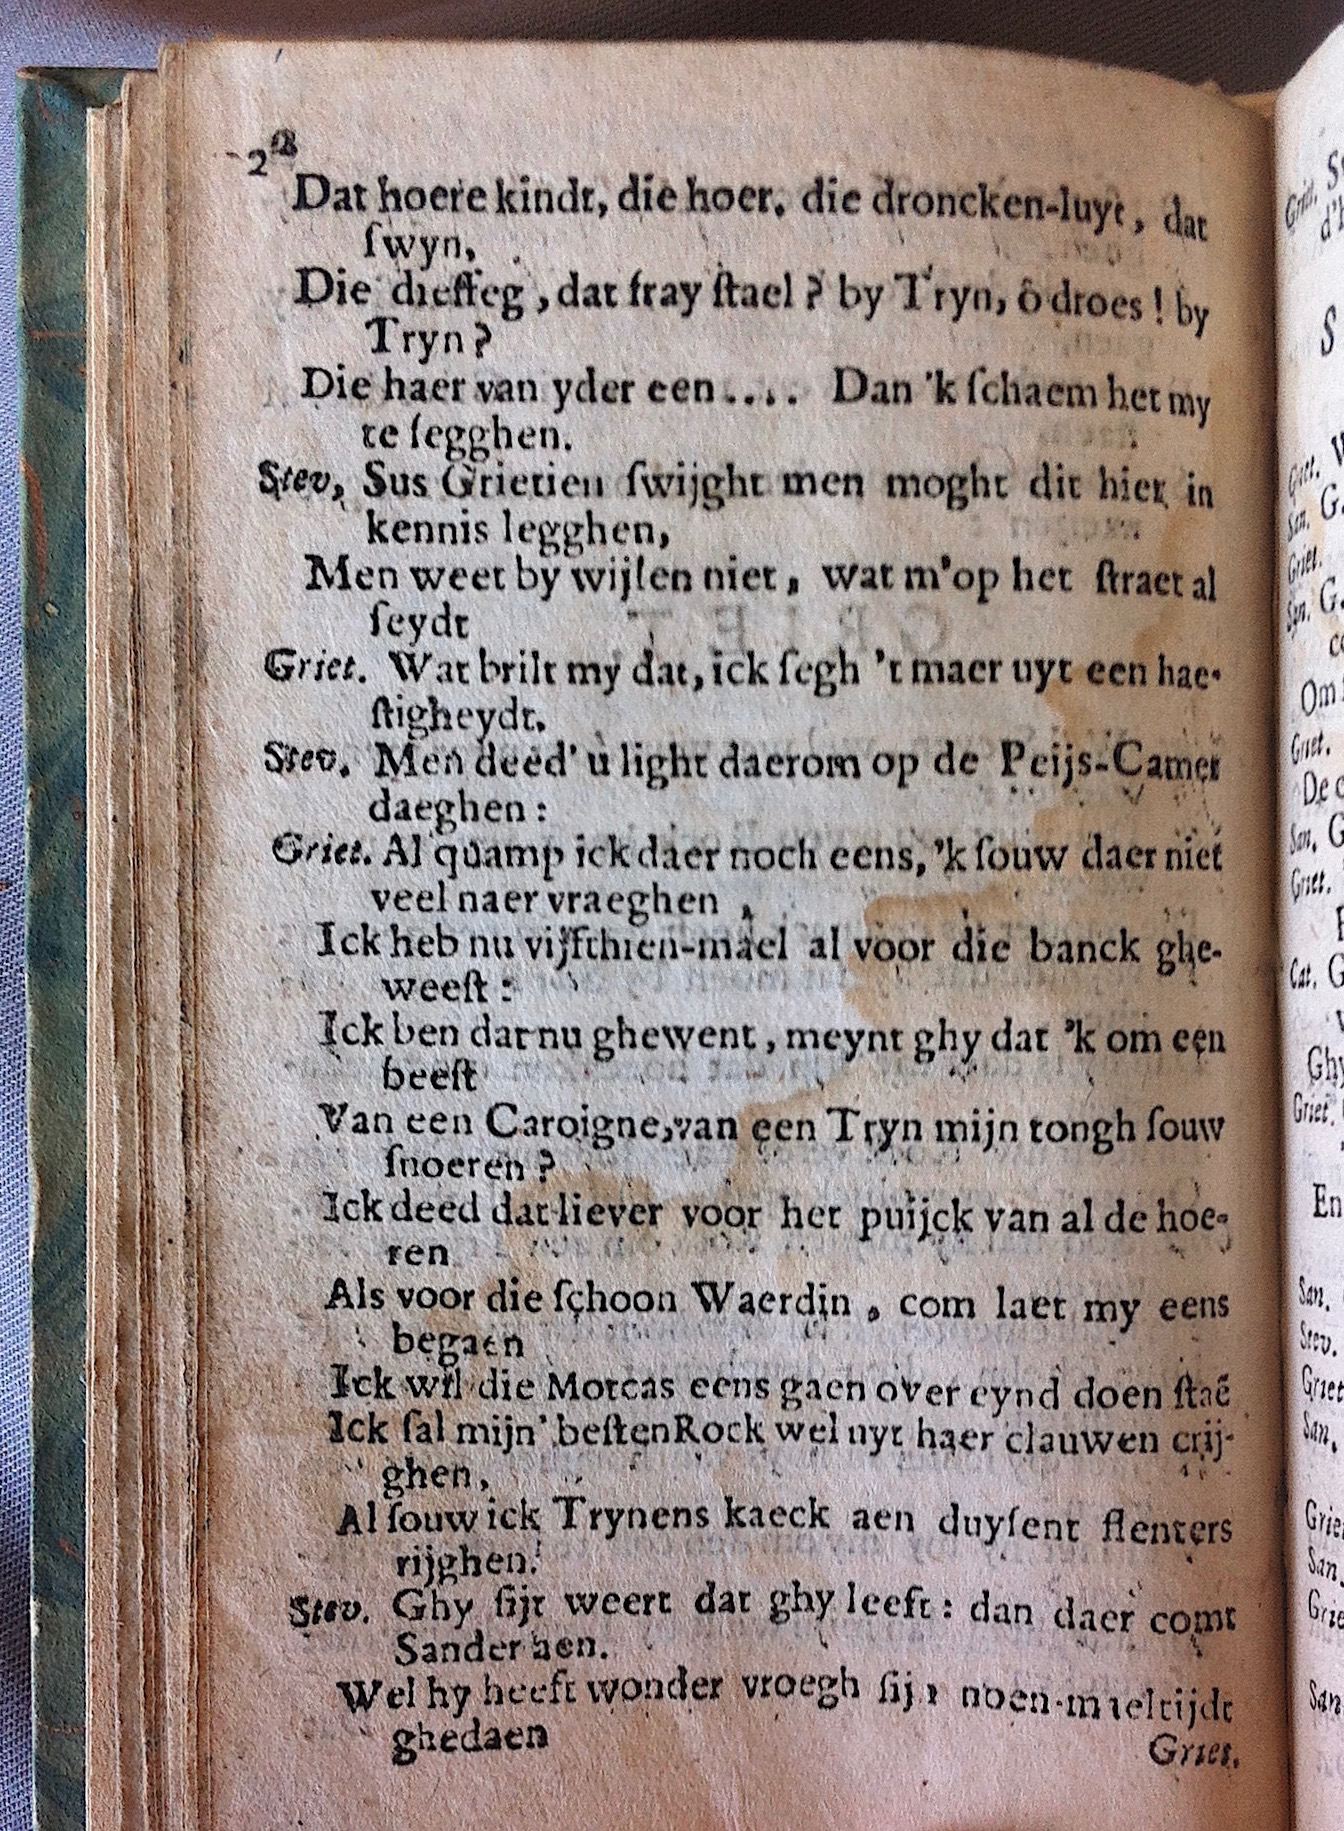 Dat hoere kindt, die hoer, die droncken-luyt, dat
ſwyn,
Die diefſeg, dat fray ſtael? by Tryn, ô droes! by
Tryn?
Die haer van yder een.... Dan 'k ſchaem het my
te ſegghen.
Stev, Sus Grietien ſwijght men moght dit hier in
kennis legghen,
Men weet by wijlen niet, wat m'op het ſtraet al
ſeydt
Griet. Wat brilt my dat, ick ſegh 't maer uyt een hae-
ſtigheydt.
Stev. Men deed' u light daerom op de Peijs-Camer
daeghen:
Griet. Al quamp ick daer noch eens, 'k ſouw daer niet
veel naer vraeghen,
Ick heb nu vijfthien-mael al voor die banck ghe-
weeſt:
Ick ben dat nu ghewent, meynt ghy dat 'k om een
beeſt
Van een Caroigne, van een Tryn mijn tongh ſouw
ſnoeren?
Ick deed dat liever voor het puijck van al de hoe-
ren
Als voor die ſchoon Waerdin, com laet my eens
begaen
Ick wil die Motcas eens gaen over eynd doen ſtaẽ
Ick ſal mijn' beſten Rock wel uyt haer clauwen crij-
ghen,
Al ſouw ick Trynens kaeck aen duyſent flenters
rijghen.
Stev. Ghy ſijt weert dat ghy leeft: dan daer comt
Sander aen.
Wel hy heeft wonder vroegh ſijn noen-maeltijdt
ghedaen
Griet.
S
Griet.
San.
Griet.
San.
Om
Griet.
De
San. G
Griet.
Cat. G
Ghy
Griet
En
San.
Stev.
Griet
San.
Grie
San.
Grie
San